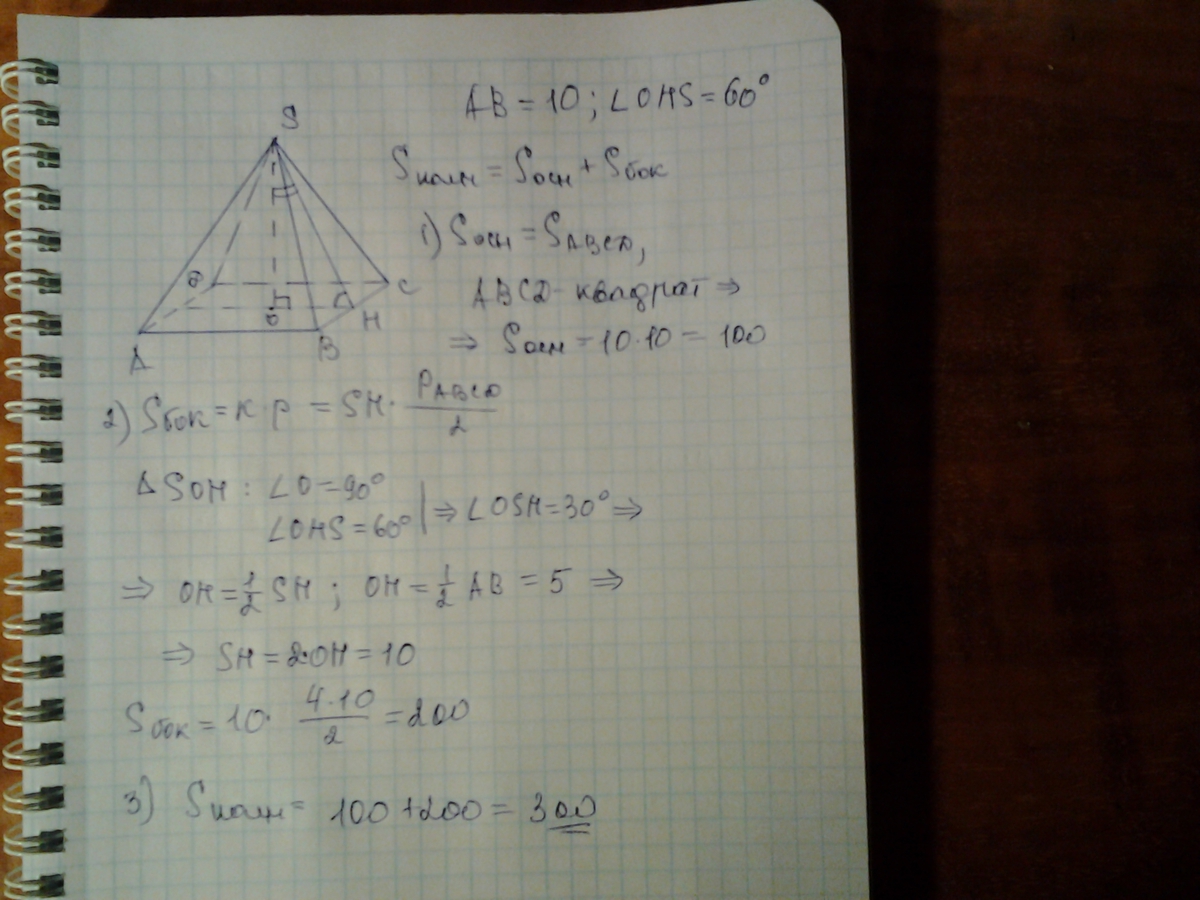 AB = 10; ∠OHS = 60°
S
Sполн = Sосн + Sбок
1) Sосн = SABCD,
ABCD - квадрат ⇒
⇒ Sосн = 10·10 = 100
C
O
H
A
B
2) Sбок = k·p = SH · PABCD/2
Δ SOH : ∠O = 90°
∠OHS = 60° | ⇒ ∠OSH = 30° ⇒
⇒ OH = 1/2 SH ; OH = 1/2 AB = 5 ⇒
⇒ SH = 2·OH = 10
Sбок = 10· 4·10/2 = 200
3) Sполн = 100 + 200 = 300